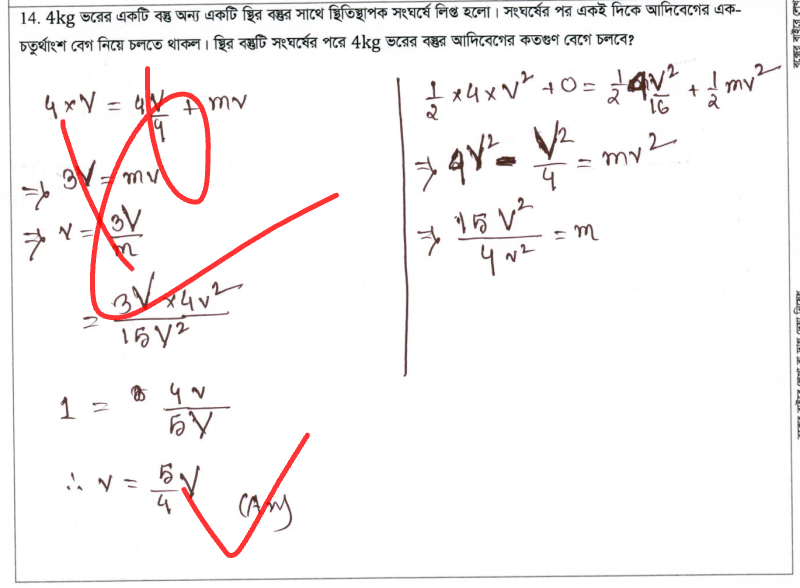 14. 4kg ভরের একটি বস্তু অন্য একটি স্থির বস্তুর সাথে স্থিতিস্থাপক সংঘর্ষে লিপ্ত হলো। সংঘর্ষের পর একই দিকে আদিবেগের এক-
চতুর্থাংশ বেগ নিয়ে চলতে থাকল। স্থির বস্তুটি সংঘর্ষের পরে 4kg ভরের বস্তুর আদিবেগের কতগুণ বেগে চলবে?
4 × V = 4 V/4 + mv
⇒ 3V = mv
⇒ v = 3V/m
= 3V × 4v²/15V²
1 = 4v/5V
∴ v = 5/4 V (Ans)
1/2 × 4 × V² + 0 = 1/2 4V²/16 + 1/2 mv²
⇒ 4V² - V²/4 = mv²
⇒ 15V²/4v² = m